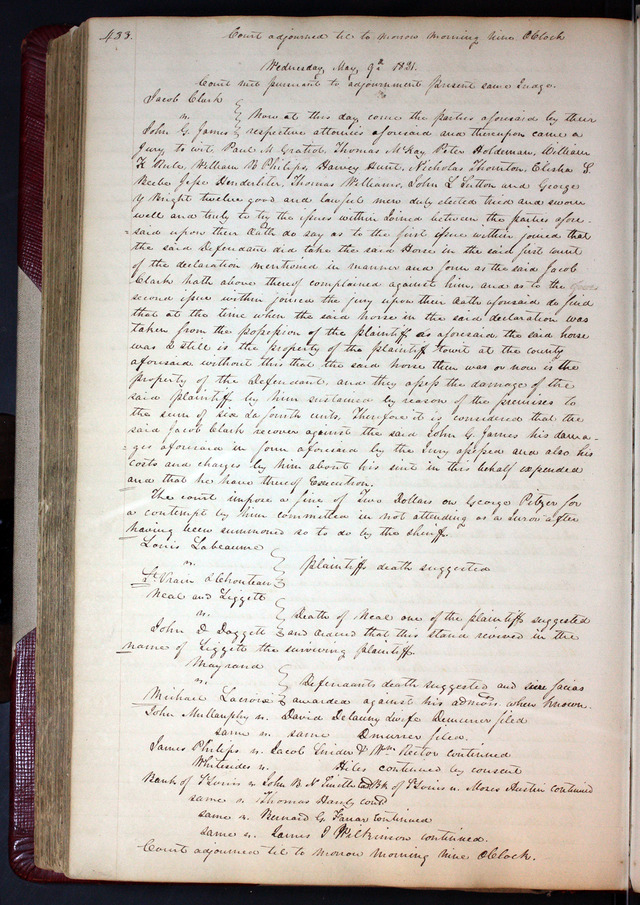 433.
Court adjourned til to morrow morning nine OClock
Wednesday May 9th 1821.
Court met pursuant to adjournment present same Judge.
Jacob Clark
vs.
John G. James
Now at this day come the parties aforesaid by their
respective attornies aforesaid and thereupon came a
Jury to wit, Paul M Gratiot, Thomas McKay Peter Holdeman, William
K Rule, William B Philips, Harvey Hurst, Nicholas Thornton, Elisha S.
Beebe Jesse Henderliter, Thomas Williams, John L Sutton and George
Y Bright twelve good and lawful men duly elected tried and sworn
well and truly to try the issues within Joined between the parties afore-
said upon their Oath do say as to the first issue within joined that
the said Defendant did take the said Horse in the said first count
of the declaration mentioned in manner and form as the said Jacob
Clark hath above thereof complained against him, and as to the
second issue within joined the jury upon their Oaths aforesaid do find
that at the time when the said horse in the said declaration was
taken from the possession of the plaintiff as aforesaid the said horse
was & still is the property of the plaintiff towit at the county
aforesaid without this that the said horse then was or now is the
property of the defendant, and they assess the damage of the
said plaintiff by him sustained by reason of the premises to
the sum of Six & a fourth cents, Therefore it is considered that the
said Jacob Clark recover against the said John G. James his dama-
ges aforesaid in form aforesaid by the Jury assessed and also his
costs and charges by him about his suit in this behalf expended
and that he have thereof Execution.
The court impose a fine of Two Dollars on George Pitzer for
a contempt by him committed in not attending as a Juror after
having been summoned so to do by the sheriff.
Louis Labeaume
vs.
St Vrain & Chouteau
plaintiffs death suggested
Neal and Liggett
vs.
John D Daggett
Death of Neal one of the plaintiffs suggested
and ordered that this stand revived in the
name of Liggett the surviving plaintiff.
Mayrand
vs.
Michael Lacroix
Defendants death suggested and scire facias
awarded against his admors. when known.
John Mullanphy vs. David Delauny & wife Demurrer filed
same vs. same Demurrer filed.
James Philips vs. Jacob Linder & Wm Rector continued
Whitesides vs. Hiles continued by consent
Bank of St Louis vs John B N Smith contd Bk of St Louis vs. Moses Austin continued
same vs Thomas Handy contd
same vs. Bernard G. Farrar continued
same vs. James J Wilkinson continued.
Court adjourned til to morrow Morning Nine OClock.